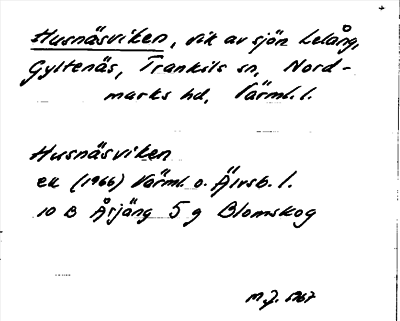 Husnäsviken, vik av sjön Lelång,
Gyltenäs, Trankils sn, Nord-
marks hd, Värml. l.
Husnäsviken
ek (1966) Värml. o. Älvsb. l.
10 B Årjäng 5 g Blomskog
M.J. 1967